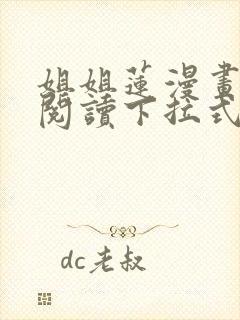 姐姐蓮漫畫
閱讀下拉式
dc老叔